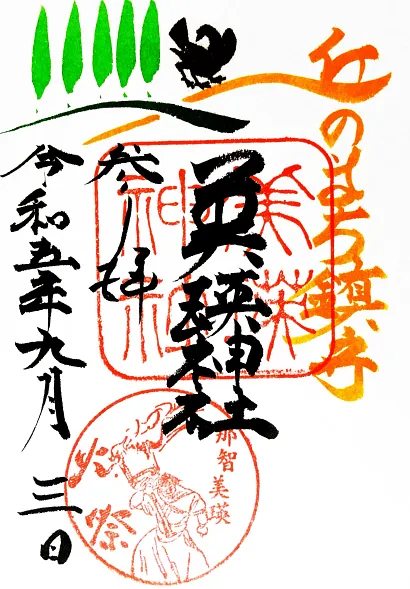 丘のまち鎮守
美瑛神社
美瑛
神社
参拝
令和五年九月三日
那智美瑛
火祭